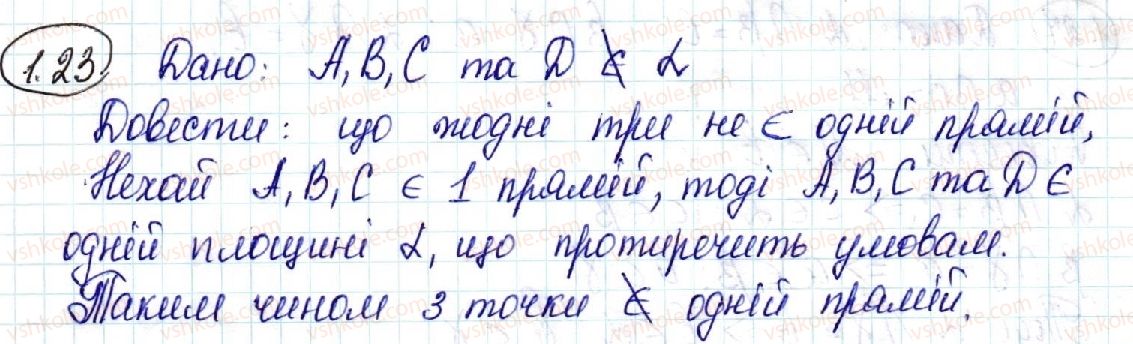 1.23. Дано: A, B, C та D ∉ α
Довести: що жодні три не ∈ одній прямій,
Нехай A, B, C ∈ 1 прямій, тоді A, B, C та D ∈
одній площині α, що протиречить умовам.
Таким чином 3 точки ∉ одній прямій.